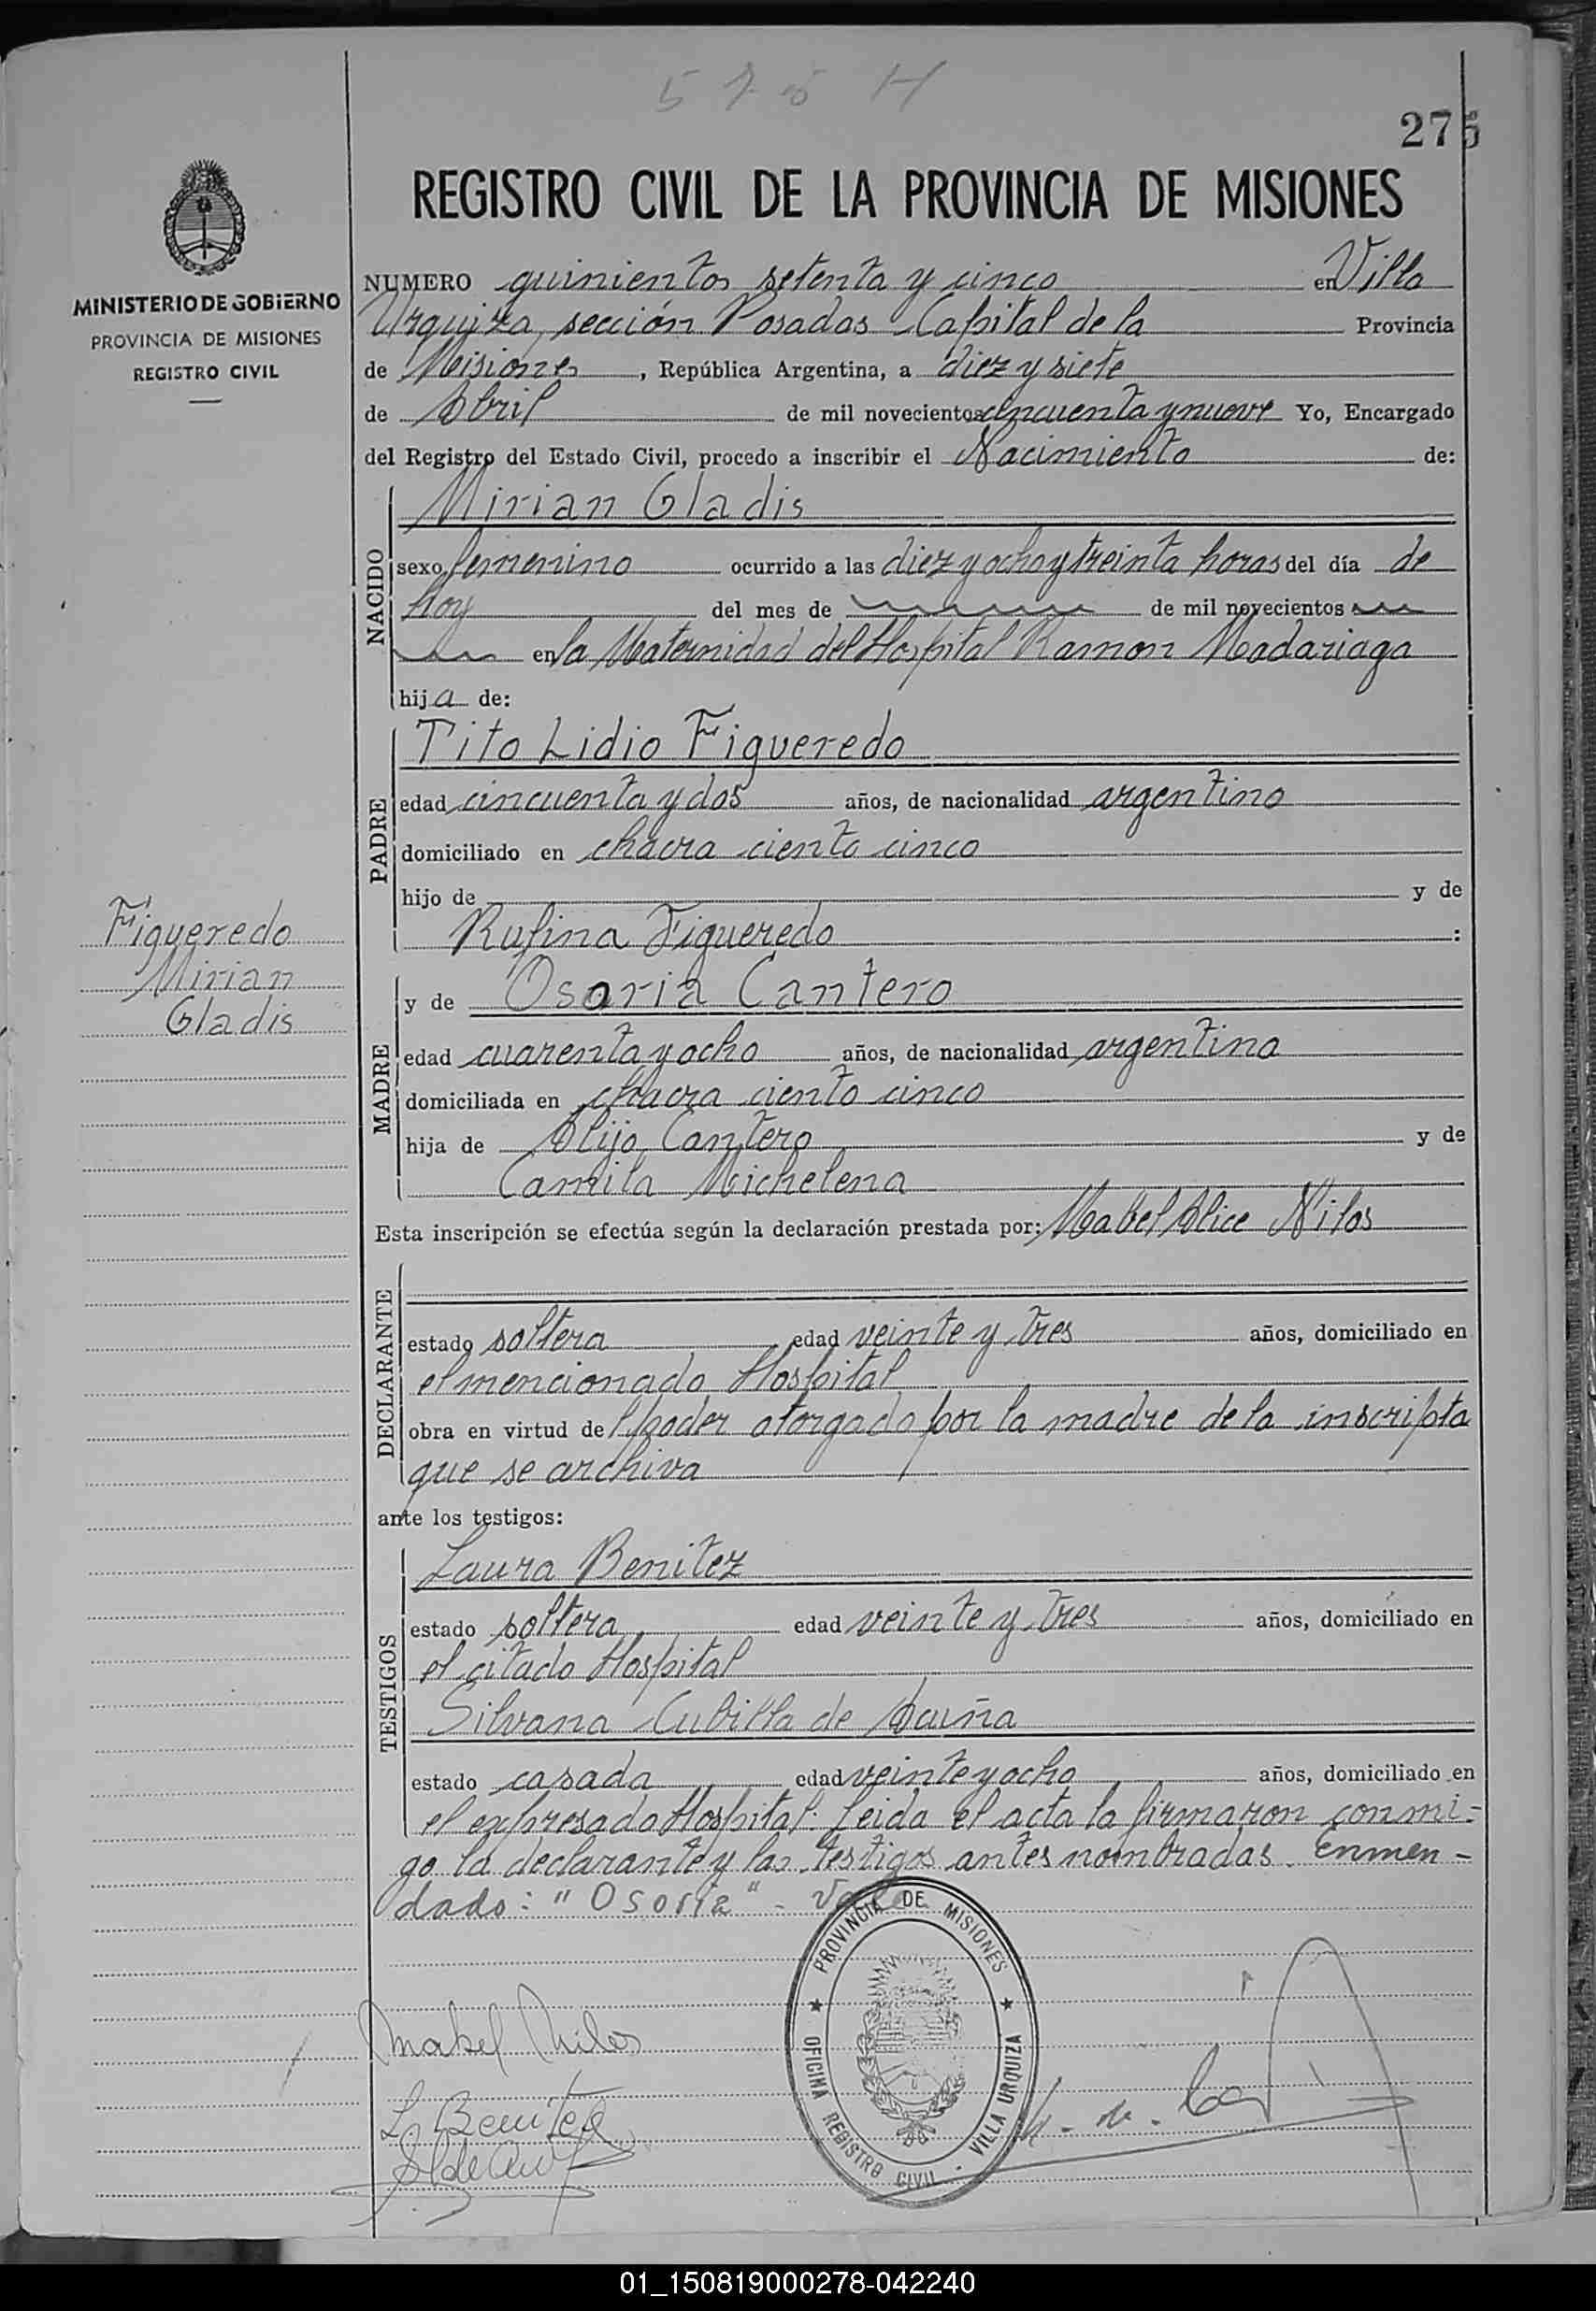 575 H
275
REGISTRO CIVIL DE LA PROVINCIA DE MISIONES
MINISTERIO DE GOBIERNO
PROVINCIA DE MISIONES
REGISTRO CIVIL
NUMERO quinientos setenta y cinco en Villa
Urquiza, sección Posadas Capital de la Provincia
de Misiones, República Argentina, a diez y siete
de Abril de mil novecientos cincuenta y nueve Yo, Encargado
del Registro del Estado Civil, procedo a inscribir el Nacimiento de:
NACIDO
Mirian Gladis
sexo femenino ocurrido a las diez y ocho y treinta horas del día de
hoy del mes de de mil novecientos
en la Maternidad del Hospital Ramon Madariaga
hija de:
PADRE
Tito Lidio Figueredo
edad cincuenta y dos años, de nacionalidad argentino
domiciliado en chacra ciento cinco
hijo de y de
Rufina Figueredo :
Figueredo
Mirian
Gladis
MADRE
y de Osoria Cantero
edad cuarenta y ocho años, de nacionalidad argentina
domiciliada en chacra ciento cinco
hija de Alijo Cantero y de
Camila Michelena
Esta inscripción se efectúa según la declaración prestada por: Mabel Alice Nilos
DECLARANTE
estado soltera edad veinte y tres años, domiciliado en
el mencionado Hospital
obra en virtud de poder otorgado por la madre de la inscripta
que se archiva
ante los testigos:
TESTIGOS
Laura Benitez
estado soltera edad veinte y tres años, domiciliado en
el citado Hospital
Silvana Cubilla de Acuña
estado casada edad veinte y ocho años, domiciliado en
el expresado Hospital. Leida el acta la firmaron conmi-
go la declarante y las testigos antes nombradas. Enmen-
dado: "Osoria" - Vale
PROVINCIA DE MISIONES
OFICINA REGISTRO CIVIL - VILLA URQUIZA
Mabel Nilos
L. Benitez
01_150819000278-042240